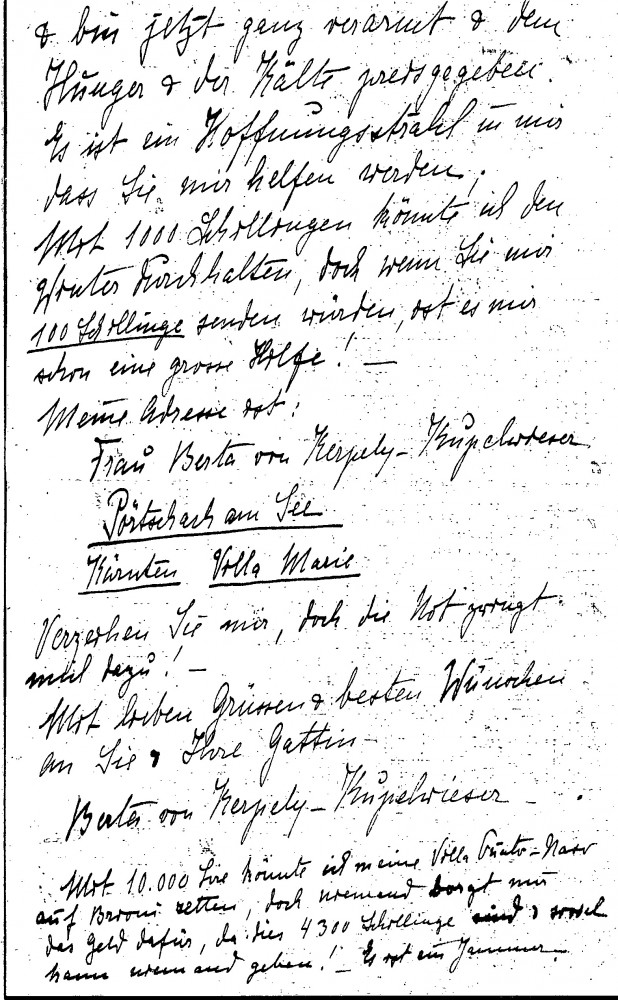 & bin jetzt ganz verarmt & dem
Hunger & der Kälte preisgegeben.
Es ist ein Hoffnungsstrahl in mir
dass Sie mir helfen werden.
Mit 1000 Schillingen könnte ich den
Winter durchhalten, doch wenn Sie mir
100 Schillinge senden würden, ist es mir
schon eine grosse Hilfe! —
Meine Adresse ist:
Frau Berta von Kerpely-Kupelwieser
Pörtschach am See
Kärnten Villa Marie
Verzeihen Sie mir, doch die Not zwingt
mich dazu! —
Mit lieben Grüssen & besten Wünschen
an Sie & Ihre Gattin —
Berta von Kerpely-Kupelwieser —
Mit 10.000 Lire könnte ich meine Villa Punto-Naso
auf Brioni retten, doch niemand borgt mir
das Geld dafür, da dies 4300 Schillinge sind & soviel
kann niemand geben! — Es ist ein Jammer.